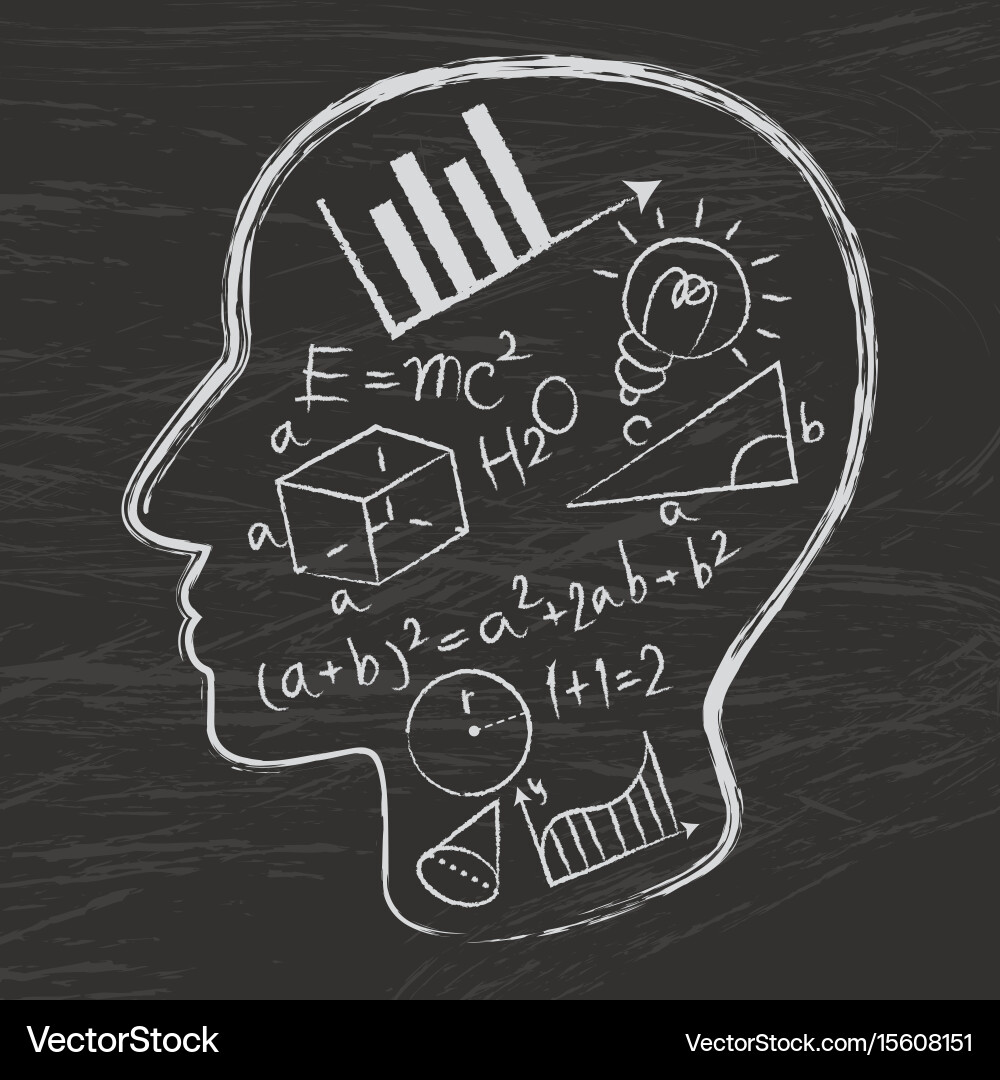 E=mc²
H2O
a
a
a
c
b
a
(a+b)²=a²+2ab+b²
r
1+1=2
y
VectorStock®
VectorStock.com/15608151